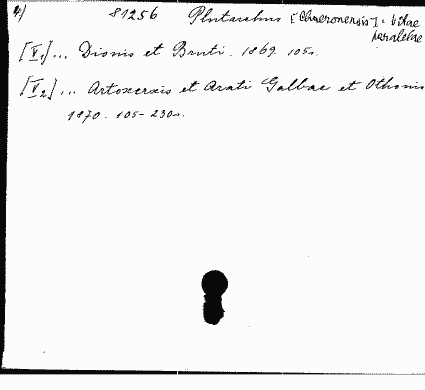 4) 81256 Plutarchus [Chaeronensis]: Vitae
parallelae
[V1] ... Dionis et Bruti. 1869. 105s.
[V2] ... Artoxerxis et Arati Galbae et Othonis
1870. 105-230s.